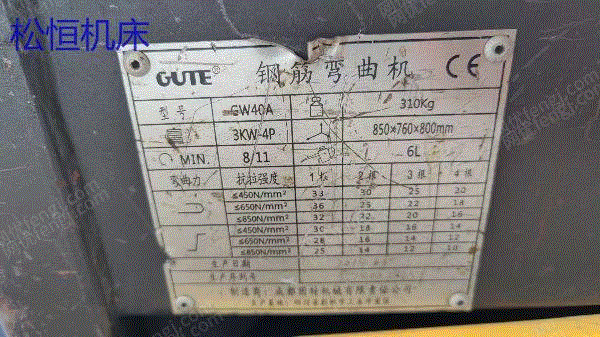 松恒机床
GUTE® 钢筋弯曲机 CE
型号 GW40A 310Kg
3KW-4P 850×760×800mm
MIN. 8/11 6L
弯曲力 抗拉强度 1根 2根 3根 4根
≤450N/mm² 30 25 20
≤650N/mm² 36 25 22 18
≤850N/mm² 32 22 20 16
≤450N/mm² 30 18 16 14
≤650N/mm² 28 16 14 12
≤850N/mm² 25 14 12 10
生产日期
生产序列号
制造商：成都固特机械有限责任公司